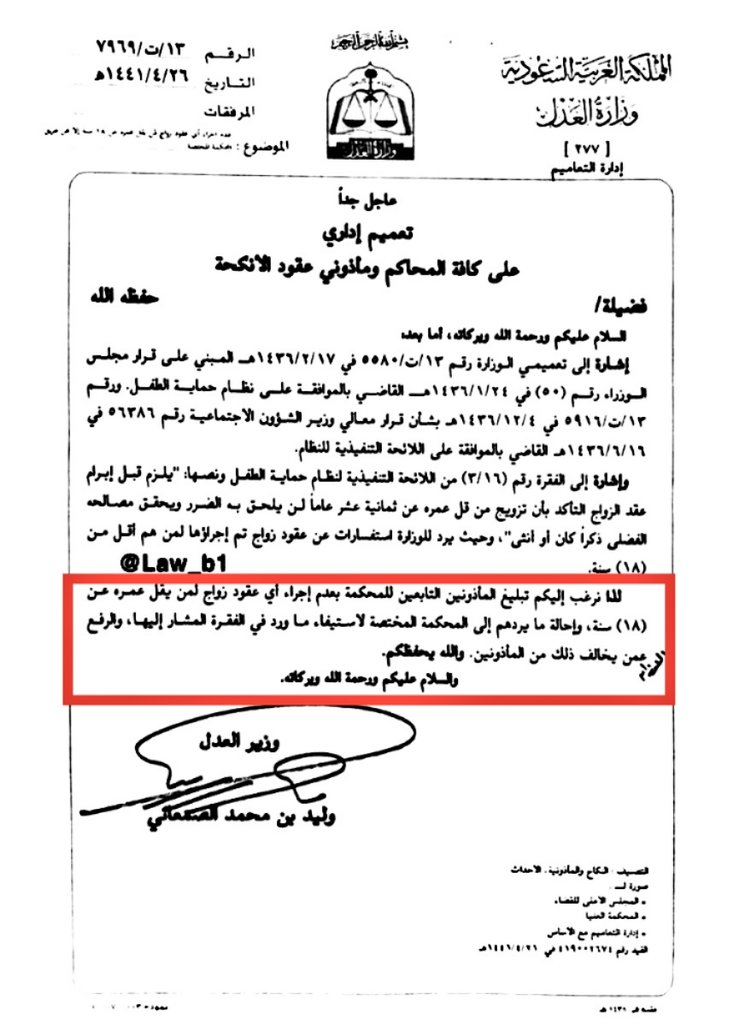 بسم الله الرحمن الرحيم
المملكة العربية السعودية
وزارة العدل
[ ٢٧٧ ]
إدارة التعاميم
وزارة العدل
الرقم ١٣/ت/٧٩٦٩
التاريخ ١٤٤١/٤/٢٦هـ
المرفقات
الموضوع : عدم إجراء أي عقود زواج لمن يقل عمره عن ١٨ سنة إلا عن طريق
المحكمة المختصة
عاجل جداً
تعميم إداري
على كافة المحاكم ومأذوني عقود الأنكحة
فضيلة/ حفظه الله
السلام عليكم ورحمة الله وبركاته، أما بعد:
إشارة إلى تعميمي الوزارة رقم ١٣/ت/٥٥٨٠ في ١٤٣٦/٢/١٧هـ المبني على قرار مجلس
الوزراء رقم (٥٠) في ١٤٣٦/١/٢٤هـ القاضي بالموافقة على نظام حماية الطفل. ورقم
١٣/ت/٥٩١٦ في ١٤٣٦/١٢/٤هـ بشأن قرار معالي وزير الشؤون الاجتماعية رقم ٥٦٣٨٦ في
١٤٣٦/٦/١٦هـ القاضي بالموافقة على اللائحة التنفيذية للنظام.
وإشارة إلى الفقرة رقم (٣/١٦) من اللائحة التنفيذية لنظام حماية الطفل ونصها: "يلزم قبل إبرام
عقد الزواج التأكد بأن تزويج من قل عمره عن ثمانية عشر عاماً لن يلحق به الضرر ويحقق مصالحه
الفضلى ذكراً كان أو أنثى"، وحيث يرد للوزارة استفسارات عن عقود زواج تم إجراؤها لمن هم أقل من
(١٨) سنة.
@Law_b1
لذا نرغب إليكم تبليغ المأذونين التابعين للمحكمة بعدم إجراء أي عقود زواج لمن يقل عمره عن
(١٨) سنة، وإحالة ما يردهم إلى المحكمة المختصة لاستيفاء ما ورد في الفقرة المشار إليها، والرفع
عمن يخالف ذلك من المأذونين. والله يحفظكم.
والسلام عليكم ورحمة الله وبركاته.
وزير العدل
وليد بن محمد الصمعاني
التصنيف : النكاح والمأذونية. الأحداث
صورة لـ :
• المجلس الأعلى للقضاء
• المحكمة العليا
• إدارة التعاميم مع الأساس
القيد رقم ٤١٩٠٠٢٦٧٤ في ١٤٤١/٤/٢٦هـ